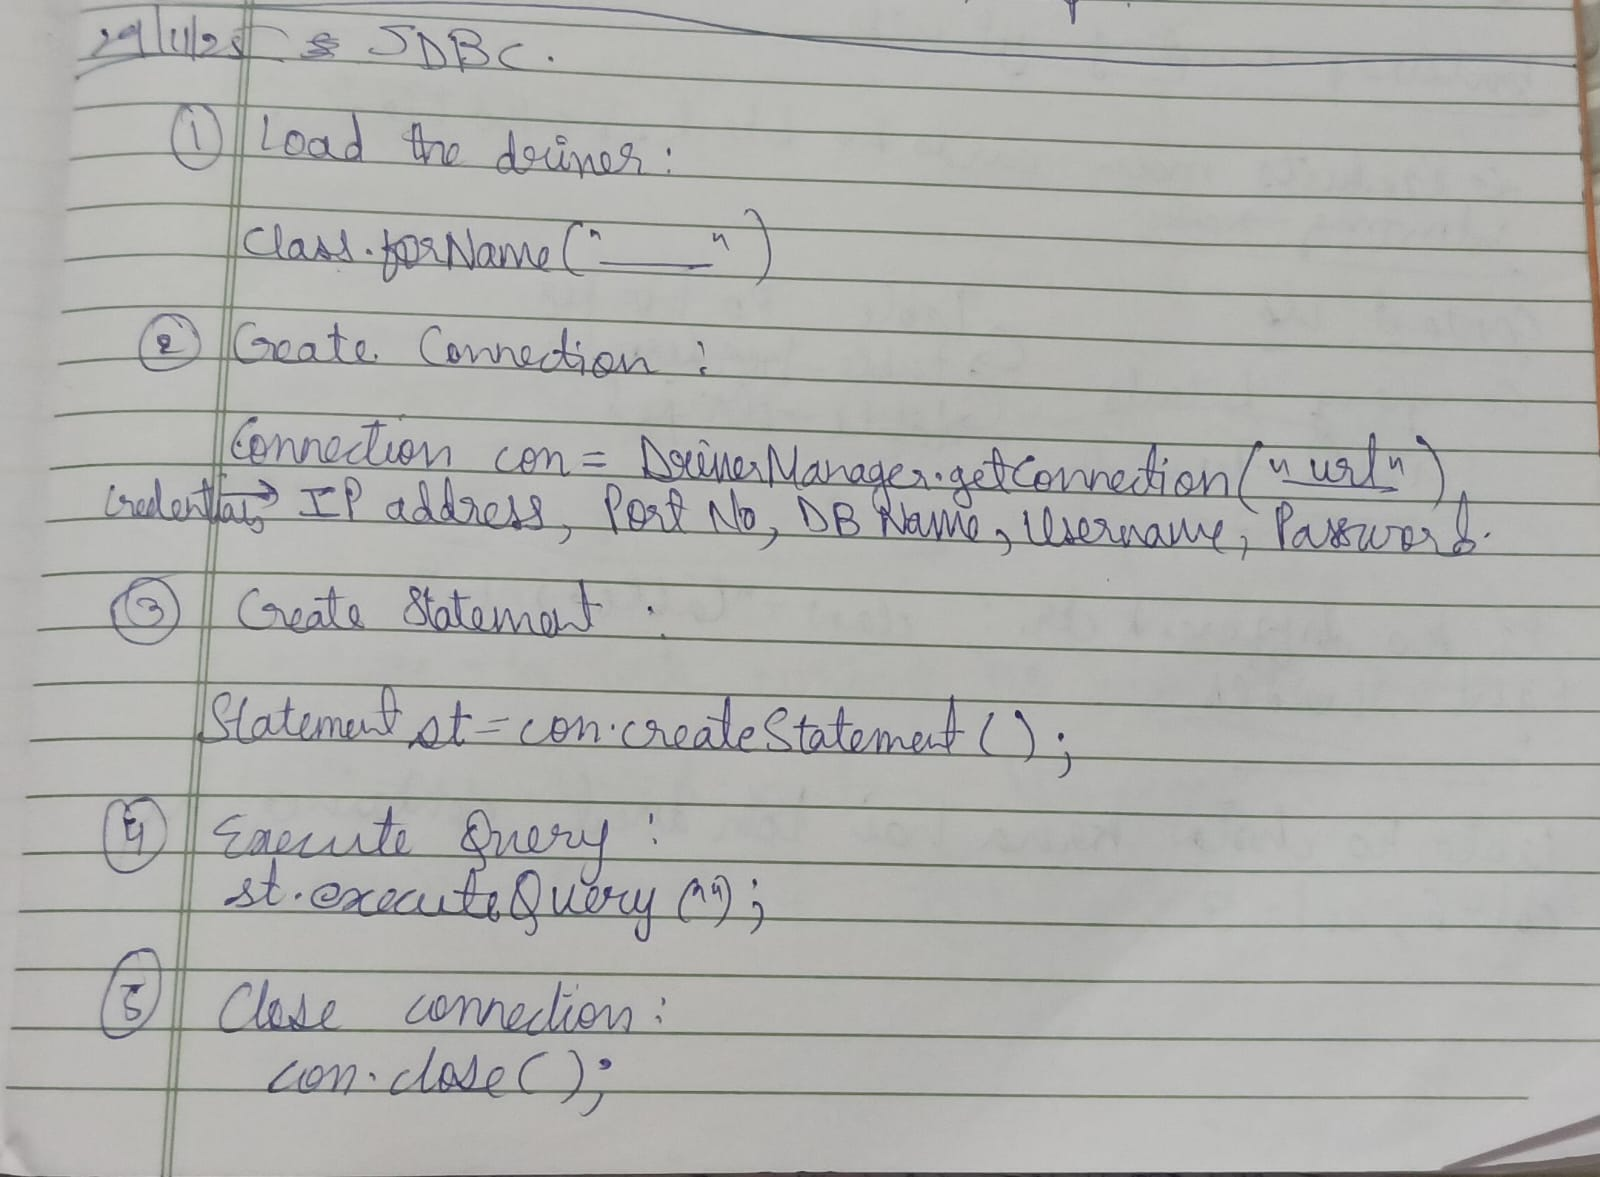 29/11/25 JDBC.
① Load the driver:
Class.forName("____")
② Create Connection:
Connection con = DriverManager.getConnection("url")
Credentials → IP address, Port No, DB Name, Username, Password.
③ Create Statement:
Statement st = con.createStatement();
④ Execute Query:
st.executeQuery("");
⑤ Close connection:
con.close();